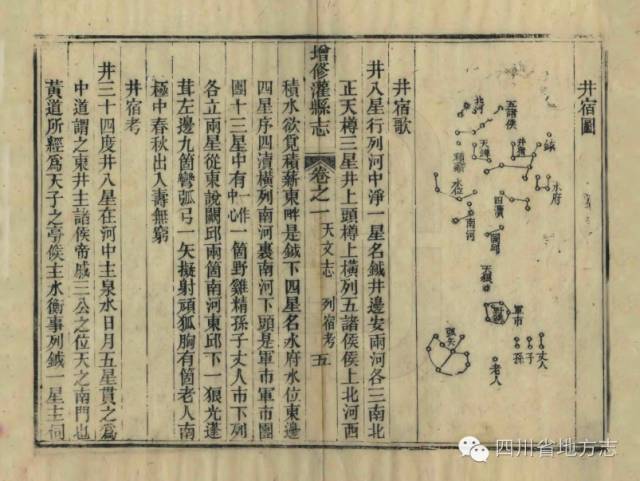 井宿圖
北河
五諸侯
鉞
天罇
井宿
水府
積薪
水位
四瀆
南河
闕邱
天狼
軍市
野雞
弧矢
丈人
子
孫
老人
井宿歌
井八星行列河中淨一星名鉞井邊安兩河各三南北
正天樽三星井上頭樽上橫列五諸侯侯上北河西
積水欲覓積薪東畔是鉞下四星名水府水位東邊
四星序四瀆橫列南河裏南河下頭是軍市軍市團
圓十三星中有一作中心一箇野雞精孫子丈人市下列
各立兩星從東說闕邱兩箇南河東邱下一狼光蓬
茸左邊九箇彎弧弓一矢擬射頑狐胸有箇老人南
極中春秋出入壽無窮
井宿考
井三十四度井八星在河中主泉水日月五星貫之為
中道謂之東井主諸侯帝戚三公之位天之南門也
黃道所經為天子之亭侯主水衡事列鉞一星主伺
增修灌縣志
卷之一
天文志
列宿考
五
四川省地方志